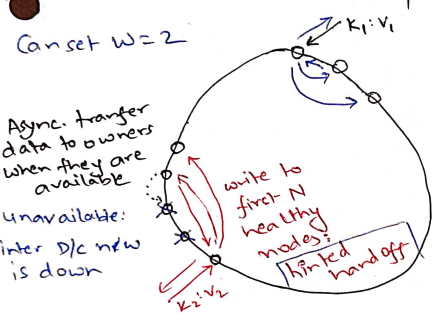 Can set W=2
K₁:V₁
Async. tranfer
data to owners
when they are
available
unavailable:
inter D/c n/w
is down
write to
first N
healthy
nodes:
hinted
handoff
K₂:V₂